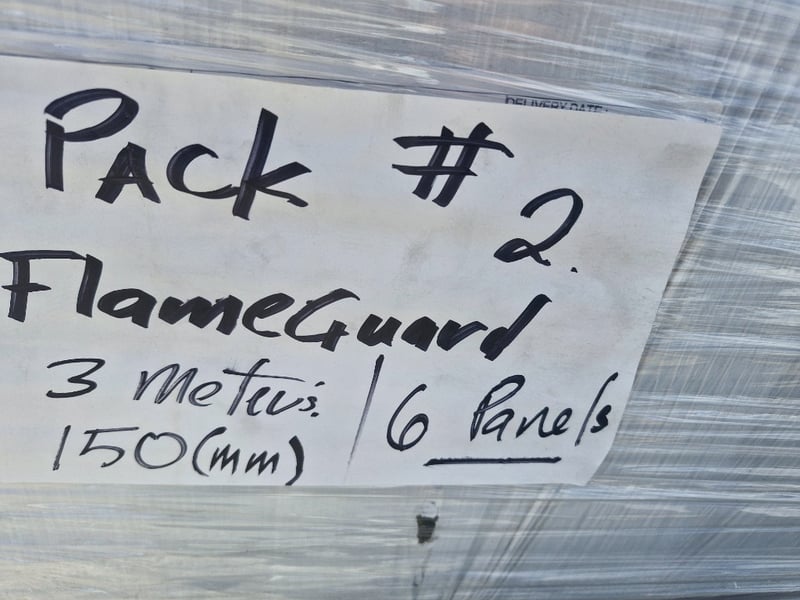 DELIVERY DATE:
Pack # 2.
FlameGuard
3 Meters. / 6 Panels
150(mm)